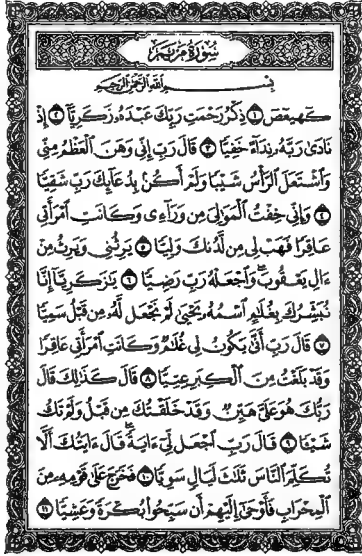 سُورَةُ مَرْيَم
بِسْمِ اللَّهِ الرَّحْمَٰنِ الرَّحِيمِ
كٓهيعٓصٓ ١ ذِكْرُ رَحْمَتِ رَبِّكَ عَبْدَهُۥ زَكَرِيَّآ ٢ إِذْ
نَادَىٰ رَبَّهُۥ نِدَآءً خَفِيًّا ٣ قَالَ رَبِّ إِنِّى وَهَنَ ٱلْعَظْمُ مِنِّى
وَٱشْتَعَلَ ٱلرَّأْسُ شَيْبًا وَلَمْ أَكُنۢ بِدُعَآئِكَ رَبِّ شَقِيًّا
٤ وَإِنِّى خِفْتُ ٱلْمَوَٰلِىَ مِن وَرَآءِى وَكَانَتِ ٱمْرَأَتِى
عَاقِرًا فَهَبْ لِى مِن لَّدُنكَ وَلِيًّا ٥ يَرِثُنِى وَيَرِثُ مِنْ
ءَالِ يَعْقُوبَ وَٱجْعَلْهُ رَبِّ رَضِيًّا ٦ يَٰزَكَرِيَّآ إِنَّا
نُبَشِّرُكَ بِغُلَٰمٍ ٱسْمُهُۥ يَحْيَىٰ لَمْ نَجْعَل لَّهُۥ مِن قَبْلُ سَمِيًّا
٧ قَالَ رَبِّ أَنَّىٰ يَكُونُ لِى غُلَٰمٌ وَكَانَتِ ٱمْرَأَتِى عَاقِرًا
وَقَدْ بَلَغْتُ مِنَ ٱلْكِبَرِ عِتِيًّا ٨ قَالَ كَذَٰلِكَ قَالَ
رَبُّكَ هُوَ عَلَىَّ هَيِّنٌ وَقَدْ خَلَقْتُكَ مِن قَبْلُ وَلَمْ تَكُ
شَيْـًٔا ٩ قَالَ رَبِّ ٱجْعَل لِّىٓ ءَايَةً قَالَ ءَايَتُكَ أَلَّا
تُكَلِّمَ ٱلنَّاسَ ثَلَٰثَ لَيَالٍ سَوِيًّا ١٠ فَخَرَجَ عَلَىٰ قَوْمِهِۦ مِنَ
ٱلْمِحْرَابِ فَأَوْحَىٰٓ إِلَيْهِمْ أَن سَبِّحُوا۟ بُكْرَةً وَعَشِيًّا ١١